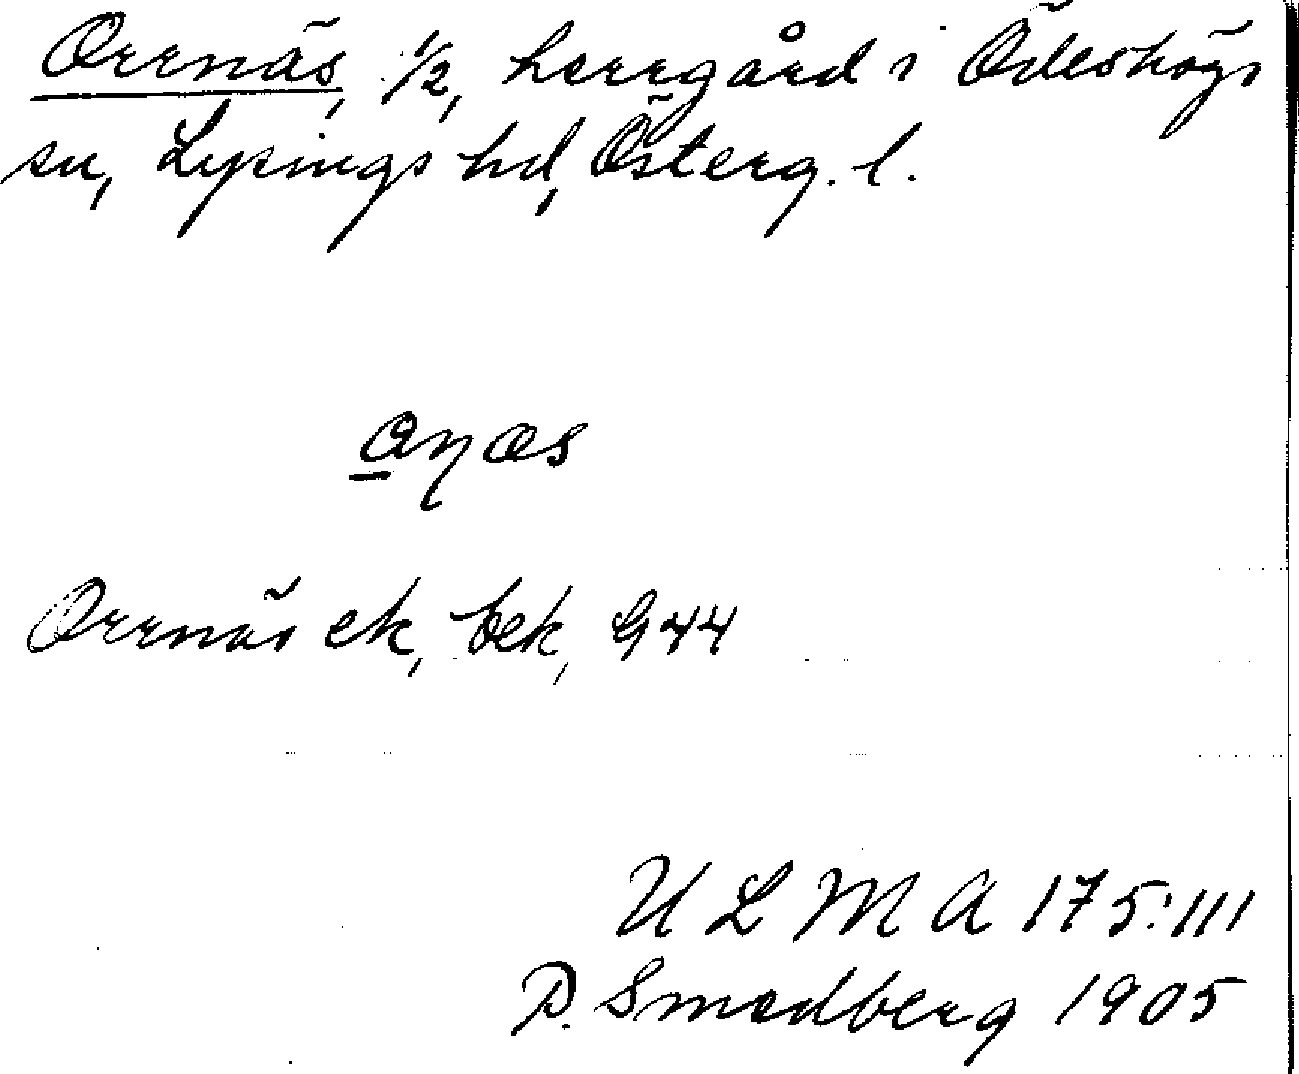 Orrnäs, 1/2, herrgård i Ödeshögs
sn, Lysings hd, Österg. l.
Orrnäs ek, bek, G44
ULMA 175:111
P. Smedberg 1905